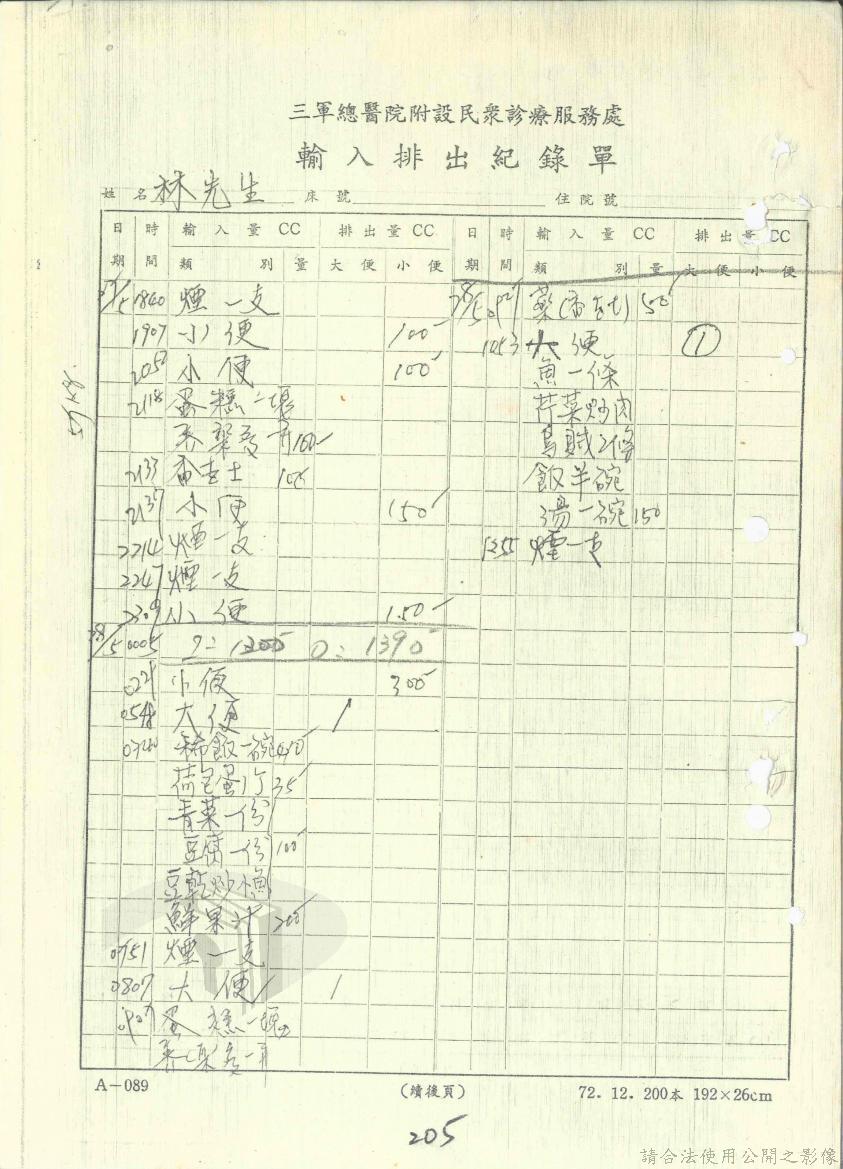 三軍總醫院附設民衆診療服務處
輸入排出紀錄單
姓名 林先生 床號 住院號
日期 時間 輸入量CC 類別 量 排出量CC 大便 小便
27/5 1840 煙一支
1907 小便 100
2050 小便 100
2118 蛋糕一塊
100
2133 100
2137 小便 150
2214 煙一支
2247 煙一支
2309 小便 150
28/5 0005 I= 1200 O= 1390
022 小便 300
054 大便 1
稀飯一碗
荷包蛋1个 35
青菜一份
豆腐一份 100
豆乾炒小魚
鮮果汁 200
0751 煙一支
0807 大便 1
蛋糕一塊
日期 時間 輸入量CC 類別 量 排出量CC 大便 小便
28/5 藥 50
1053 大便 ①
魚一條
芹菜炒肉
烏賊2條
飯半碗
湯一碗 150
1255 煙一支
A-089 (續後頁) 72.12.200本 192×26cm
205
請合法使用公開之影像